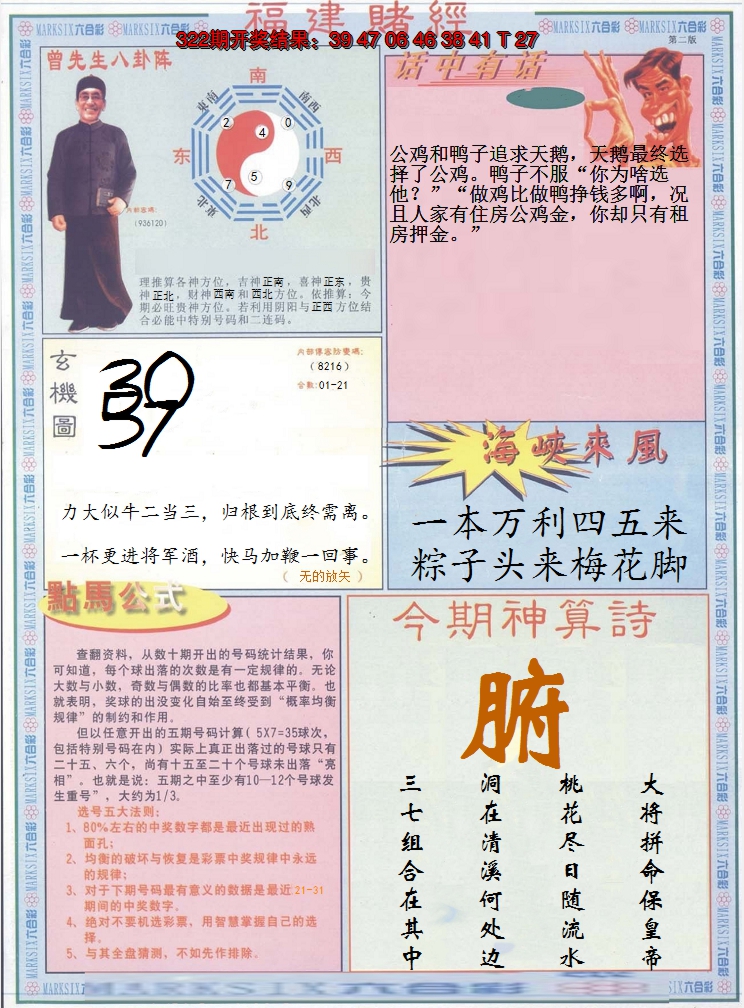 福建賭經
322期开奖结果：39 47 06 46 38 41 T 27
MARKSIX六合彩
第二版
曾先生八卦阵
南
東南
南西
东
西
東北
北西
北
2
4
0
7
5
9
内部密碼：
（936120）
理推算各神方位，吉神正南，喜神正东，贵
神正北，财神西南和西北方位。依推算：今
期必旺贵神方位。若利用阴阳与正西方位结
合必能中特别号码和二连码。
话中有话
公鸡和鸭子追求天鹅，天鹅最终选
择了公鸡。鸭子不服“你为啥选
他？”“做鸡比做鸭挣钱多啊，况
且人家有住房公鸡金，你却只有租
房押金。”
玄機圖
39
37
（8216）
合数:01-21
力大似牛二当三，归根到底终需离。
一杯更进将军酒，快马加鞭一回事。
（ 无的放矢 ）
海峡來風
一本万利四五来
粽子头来梅花脚
點馬公式
查翻资料，从数十期开出的号码统计结果，你
可知道，每个球出落的次数是有一定规律的。无论
大数与小数，奇数与偶数的比率也都基本平衡。也
就表明，奖球的出没变化自始至终受到“概率均衡
规律”的制约和作用。
但以任意开出的五期号码计算( 5X7=35球次，
包括特别号码在内）实际上真正出落过的号球只有
二十五、六个，尚有十五至二十个号球未出落“亮
相”。也就是说：五期之中至少有10—12个号球发
生重号”，大约为1/3。
选号五大法则：
1、80%左右的中奖数字都是最近出现过的熟
面孔；
2、均衡的破坏与恢复是彩票中奖规律中永远
的规律；
3、对于下期号码最有意义的数据是最近21-31
期间的中奖数字。
4、绝对不要机选彩票，用智慧掌握自己的选
择。
5、与其全盘猜测，不如先作排除。
今期神算詩
腑
大将拼命保皇帝
桃花尽日随流水
洞在清溪何处边
三七组合在其中